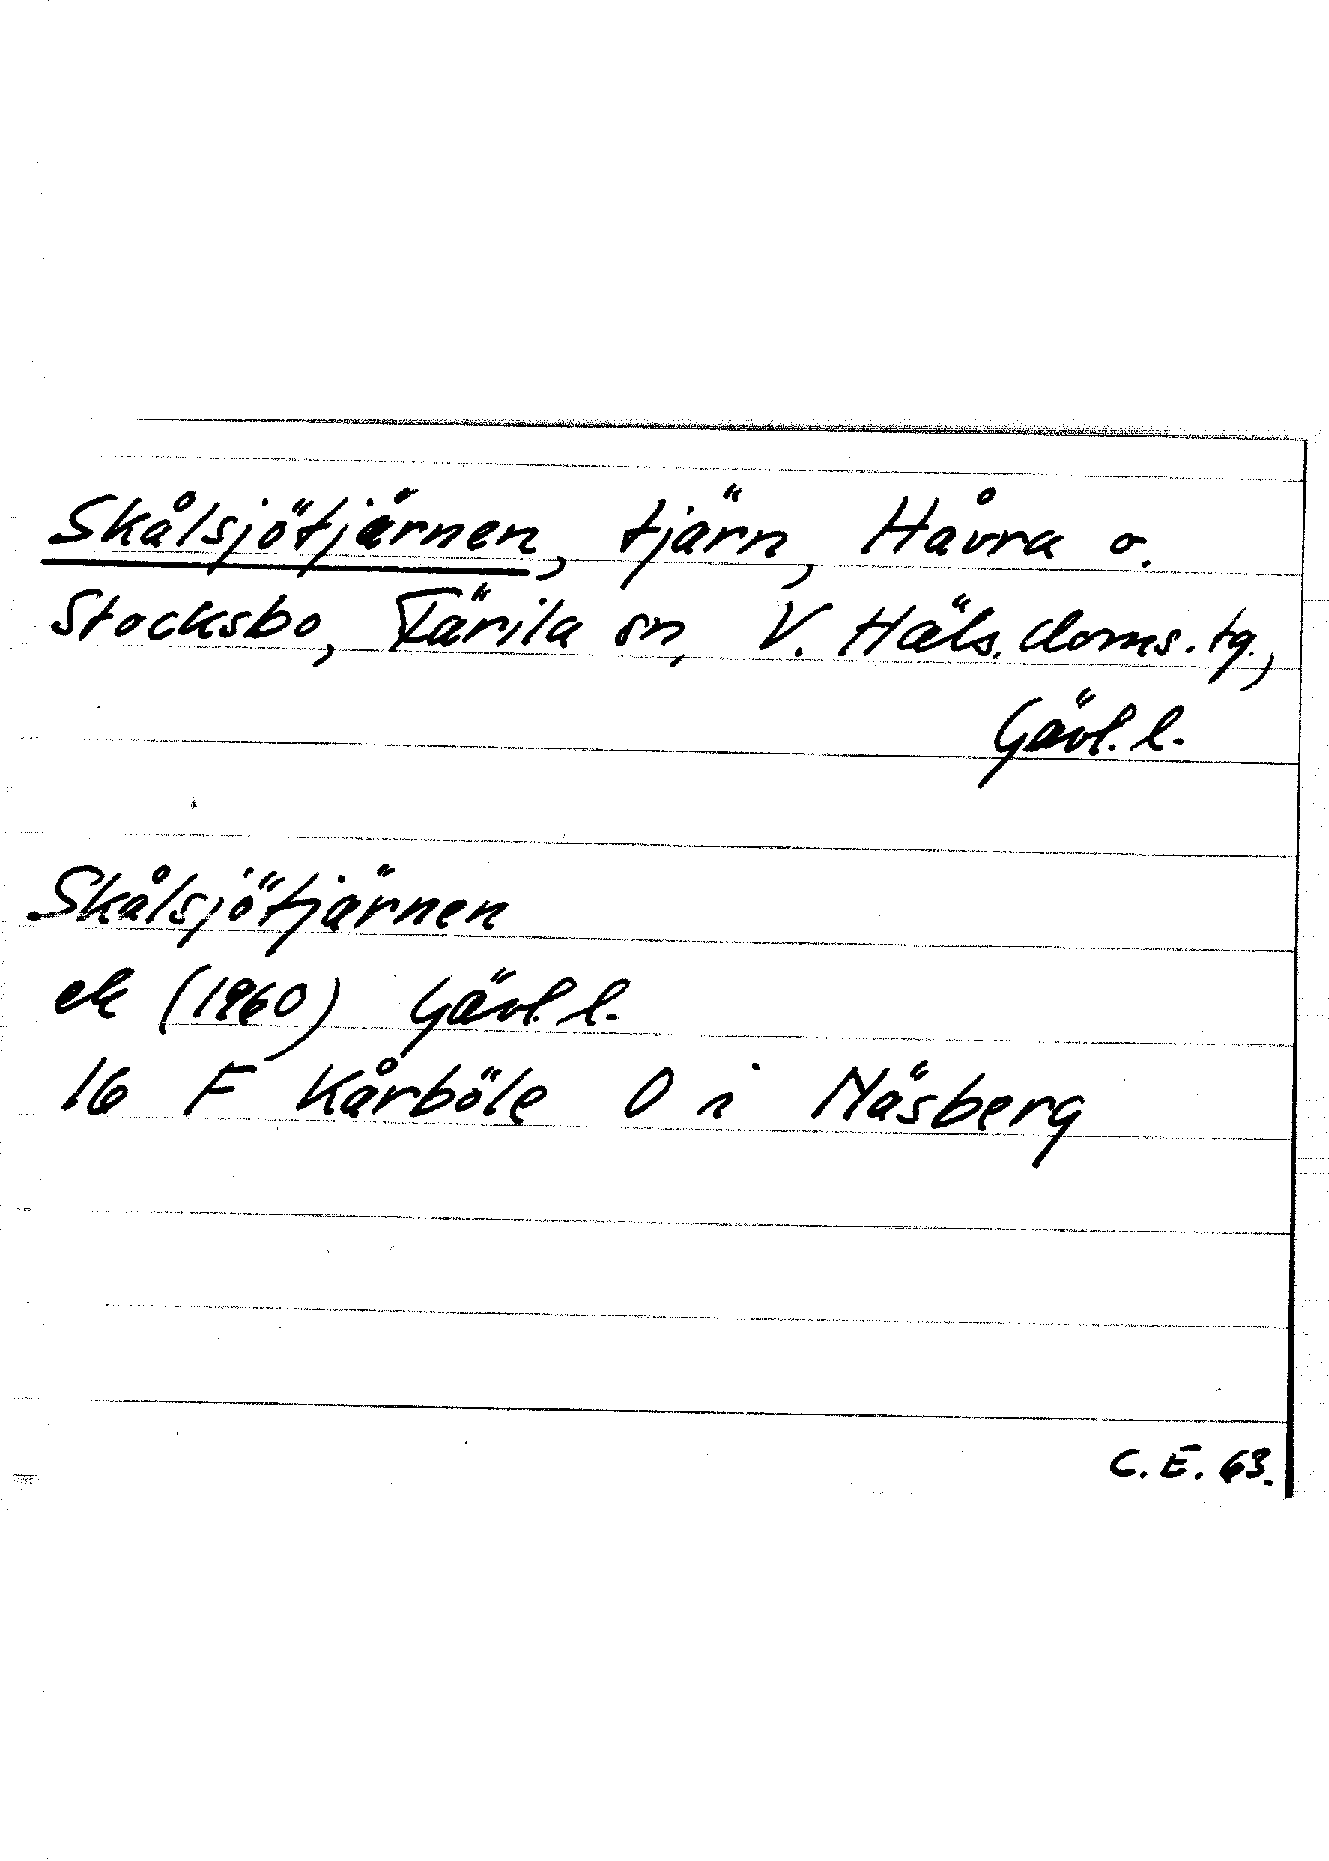 Skålsjötjärnen, tjärn, Håvra o.
Stocksbo, Färila sn, V. Häls. doms. tg.,
Gävl. l.
Skålsjötjärnen
ek (1960) Gävl. l.
16 F Kårböle O i Näsberg
C. E. 63.